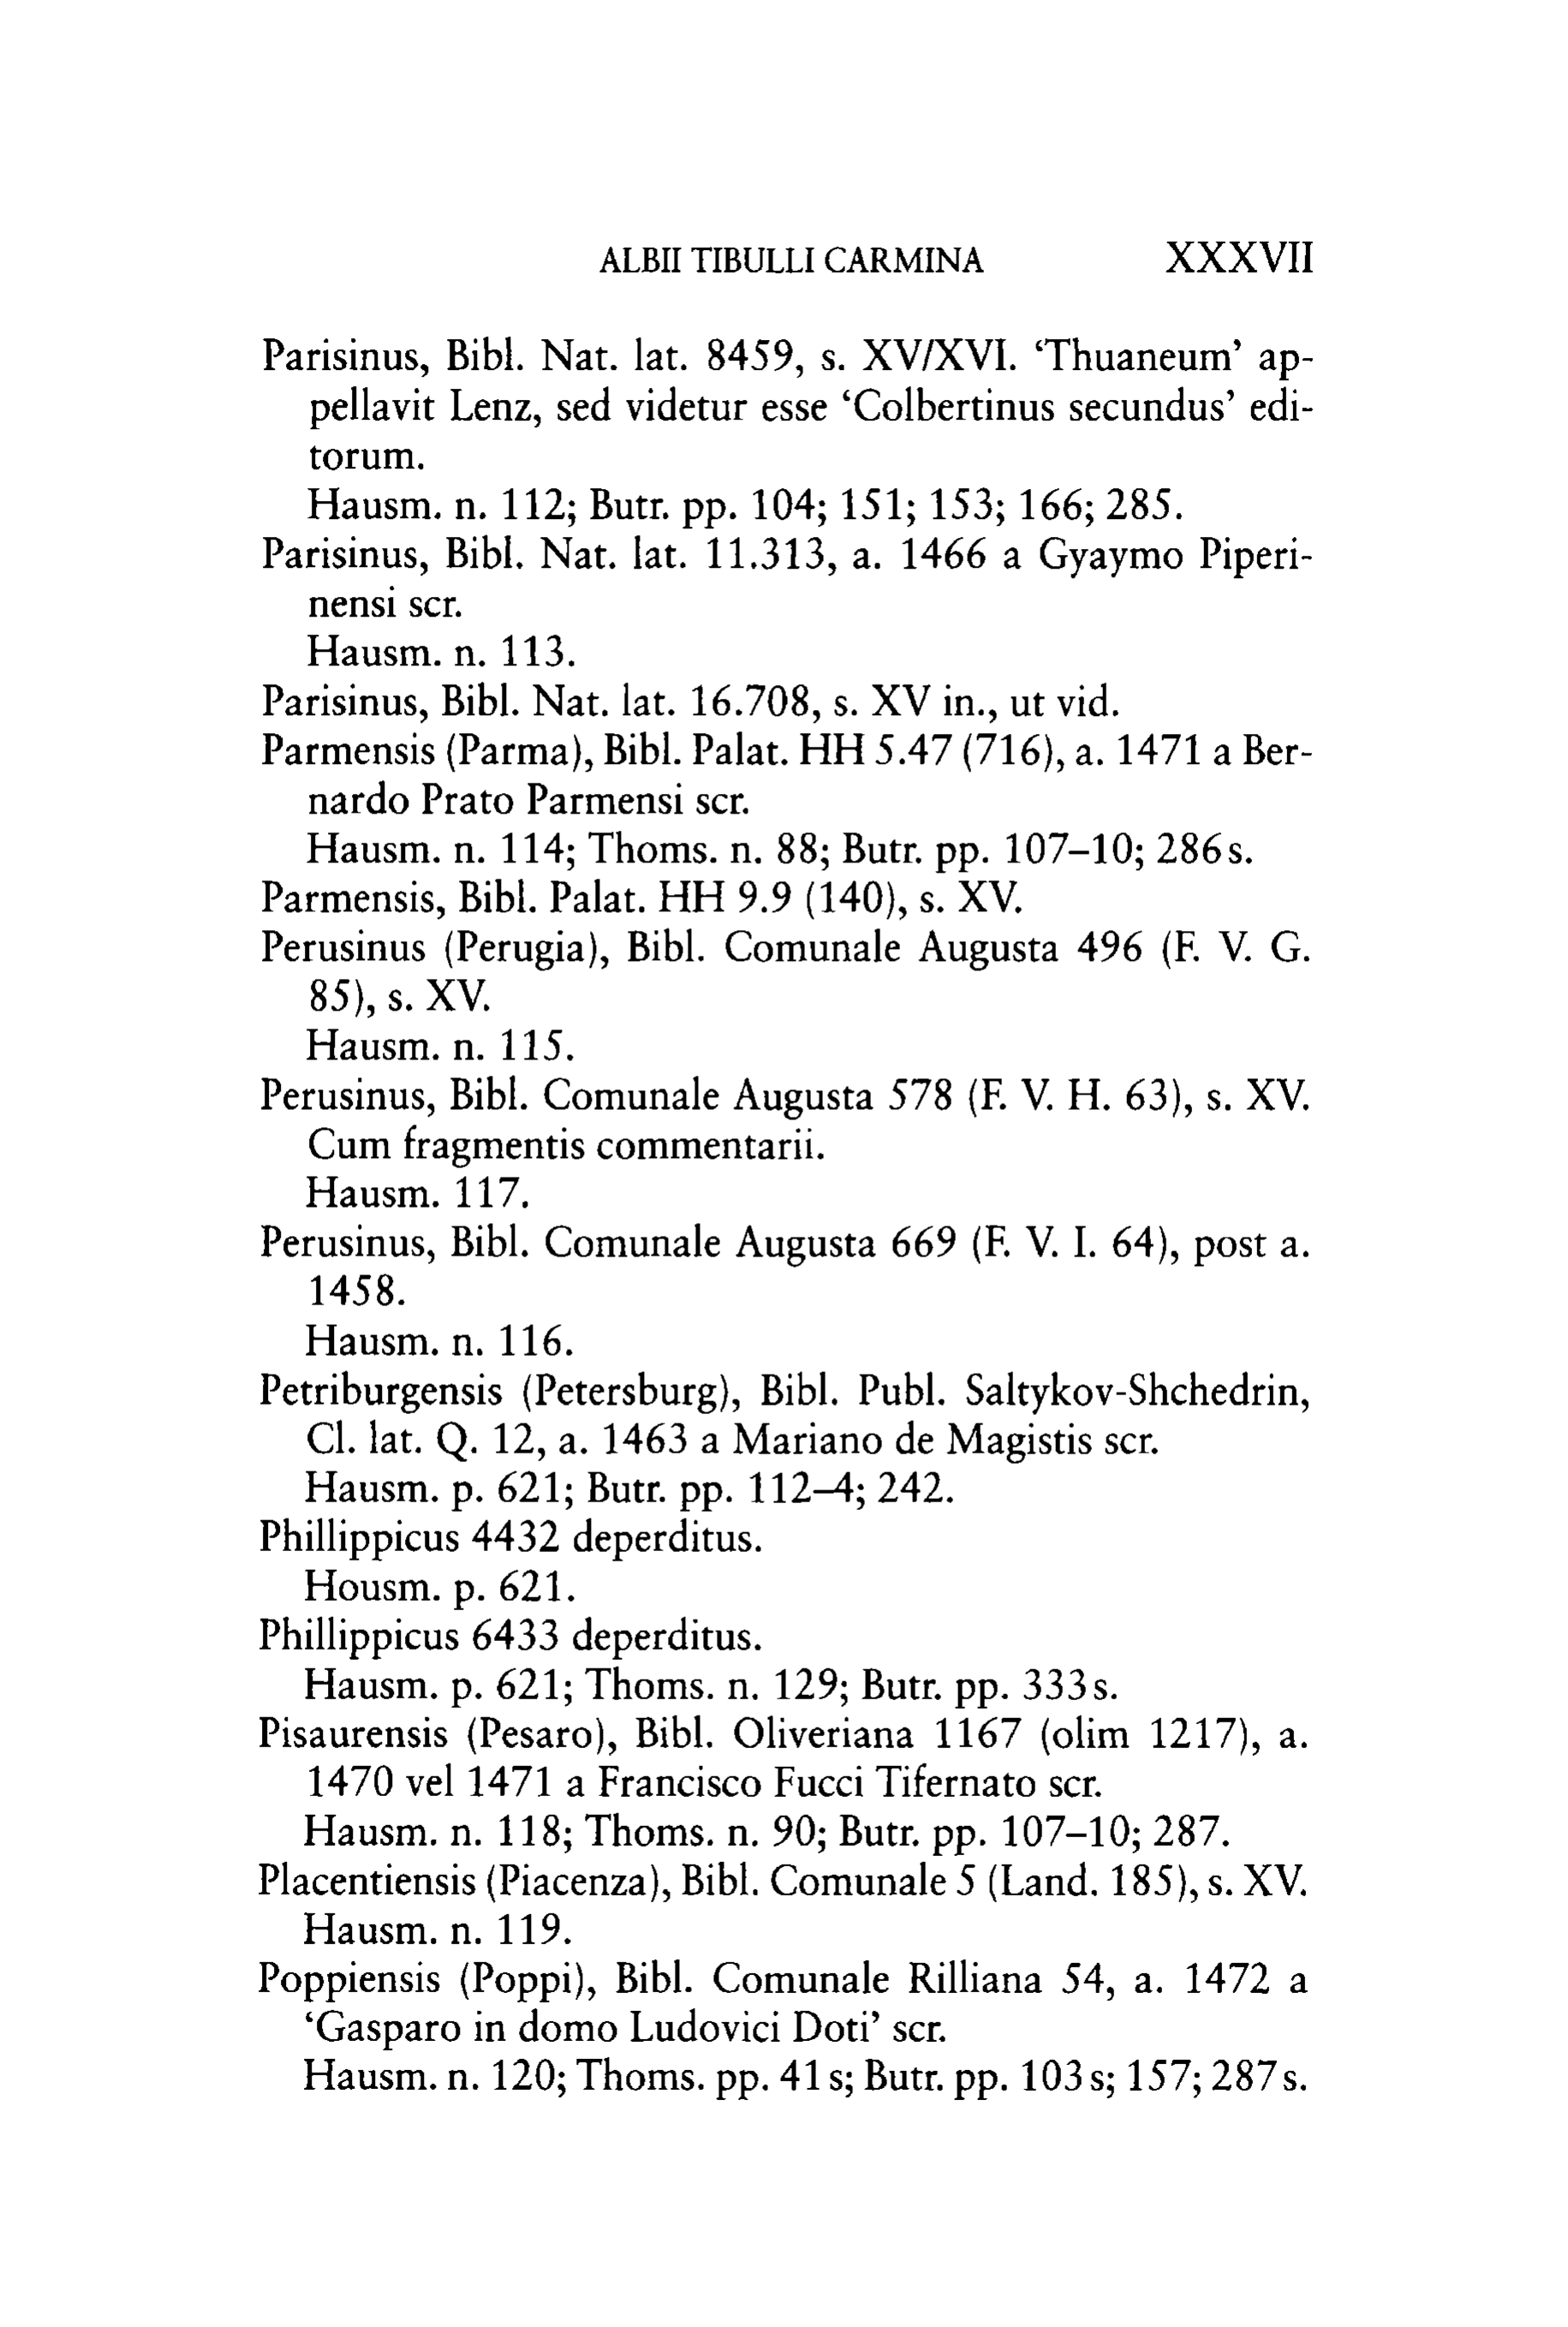 ALBII TIBULLI CARMINA XXXVII
Parisinus, Bibl. Nat. lat. 8459, s. XV/XVI. ‘Thuaneum’ ap-
pellavit Lenz, sed videtur esse ‘Colbertinus secundus’ edi-
torum.
Hausm. n. 112; Butr. pp. 104; 151; 153; 166; 285.
Parisinus, Bibl. Nat. lat. 11.313, a. 1466 a Gyaymo Piperi-
nensi scr.
Hausm. n. 113.
Parisinus, Bibl. Nat. lat. 16.708, s. XV in., ut vid.
Parmensis (Parma), Bibl. Palat. HH 5.47 (716), a. 1471 a Ber-
nardo Prato Parmensi scr.
Hausm. n. 114; Thoms. n. 88; Butr. pp. 107–10; 286 s.
Parmensis, Bibl. Palat. HH 9.9 (140), s. XV.
Perusinus (Perugia), Bibl. Comunale Augusta 496 (F. V. G.
85), s. XV.
Hausm. n. 115.
Perusinus, Bibl. Comunale Augusta 578 (F. V. H. 63), s. XV.
Cum fragmentis commentarii.
Hausm. 117.
Perusinus, Bibl. Comunale Augusta 669 (F. V. I. 64), post a.
1458.
Hausm. n. 116.
Petriburgensis (Petersburg), Bibl. Publ. Saltykov-Shchedrin,
Cl. lat. Q. 12, a. 1463 a Mariano de Magistis scr.
Hausm. p. 621; Butr. pp. 112–4; 242.
Phillippicus 4432 deperditus.
Housm. p. 621.
Phillippicus 6433 deperditus.
Hausm. p. 621; Thoms. n. 129; Butr. pp. 333 s.
Pisaurensis (Pesaro), Bibl. Oliveriana 1167 (olim 1217), a.
1470 vel 1471 a Francisco Fucci Tifernato scr.
Hausm. n. 118; Thoms. n. 90; Butr. pp. 107–10; 287.
Placentiensis (Piacenza), Bibl. Comunale 5 (Land. 185), s. XV.
Hausm. n. 119.
Poppiensis (Poppi), Bibl. Comunale Rilliana 54, a. 1472 a
‘Gasparo in domo Ludovici Doti’ scr.
Hausm. n. 120; Thoms. pp. 41 s; Butr. pp. 103 s; 157; 287 s.